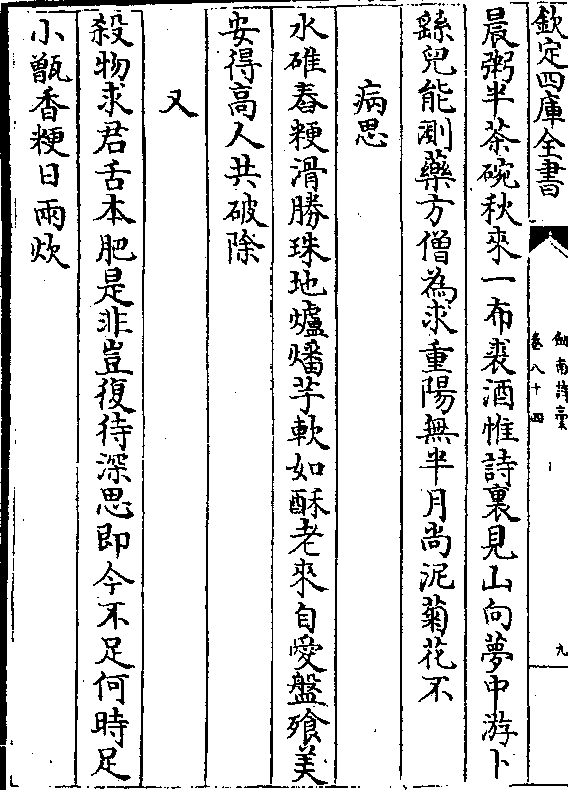 欽定四庫全書
劍南詩稾
卷八十四
九
晨粥半茶碗秋來一布裘酒惟詩裏見山向夢中游卜
繇兒能刪藥方僧為求重陽無半月尚泥菊花不
病思
水碓舂粳滑勝珠地爐燔芋軟如酥老來自愛盤飱美
安得高人共破除
又
殺物求君舌本肥是非豈復待深思即今不足何時足
小甑香粳日兩炊